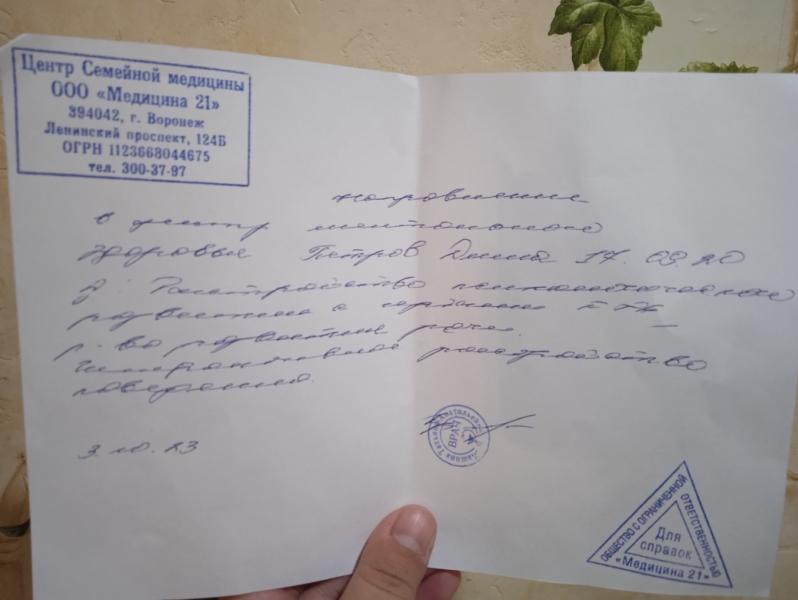 Центр Семейной медицины
ООО «Медицина 21»
394042, г. Воронеж
Ленинский проспект, 124Б
ОГРН 1123668044675
тел. 300-37-97
направление
в центр ментального
здоровья Петров 17.09.20
Расстройство психологического
развития с
р-во развития речи.
Гиперактивное расстройство
поведения.
3.10.23
ВРАЧ
ОБЩЕСТВО С ОГРАНИЧЕННОЙ ОТВЕТСТВЕННОСТЬЮ
Для
справок
«Медицина 21»